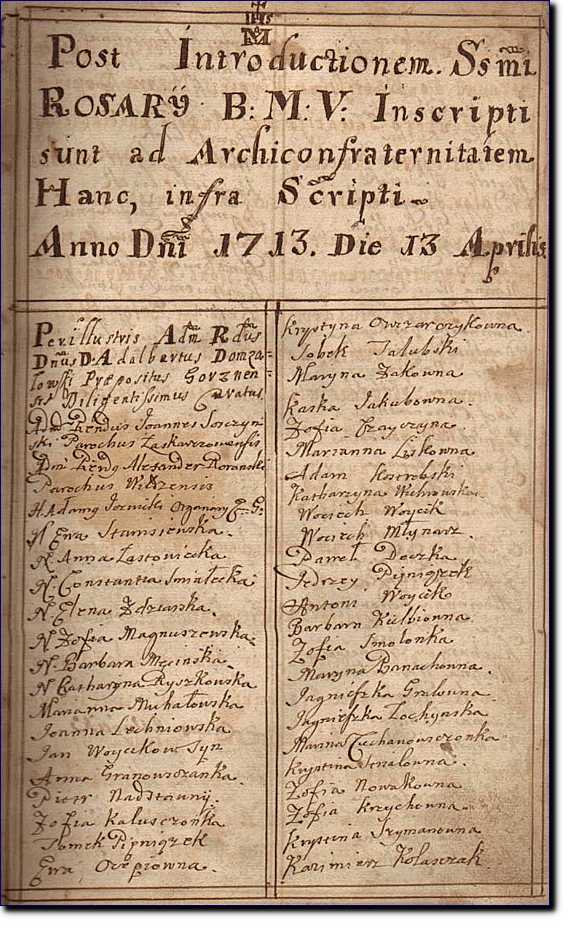 IHS
M
Post Introductionem. Ssmi
ROSARŸ B: M: V: Inscripti
sunt ad Archiconfraternitatem
Hanc, infra Scripti
Anno Dñi 1713. Die 13 Aprilis
Perillustris Adm Rdus
Dnus D. Adalbertus Domza-
lowski Præpositus Gorznen-
sis Diligentissimus Curatus
Joannes
Parochus
Alexander
Parochus
H. Adamg
N Ewa Stanisiewska.
N Anna Łastowiecka
N Constantia Smiałecka
N Elena Zdziarska.
N Zofia Magnuszewska
N. Barbara Męcinska.
N Catharyna Ryszkowska
Marianna Michałowska
Joanna Lechniowska
Jan Woycikow Syn
Anna Granowszanka.
Piotr Nadstawny.
Zofia Kaluszczonka
Tomek Pipniączek
Ewa Ocepiowna.
Krystyna Owczarczykowna.
Sobek Jalubski
Maryna Zakowna.
Kaska Jakubowna.
Zofia
Marianna Liskowna
Adam Kostrobski
Katharzyna
Woyciech Woycik
Woyciech Młynarz.
Paweł Deczka
Jedrzey Pipniączek
Antoni Woycik
Barbara Kulbionna
Zofia Smolonka
Maryna Banachowna.
Jagnieszka Gralowna.
Jagnieszka Zochynska
Marina Ciechanowszczonka
Krystina
Zofia Nowakowna
Zofia Krzychowna.
Krystina Szymanowna
Kazimierz Kolasczak